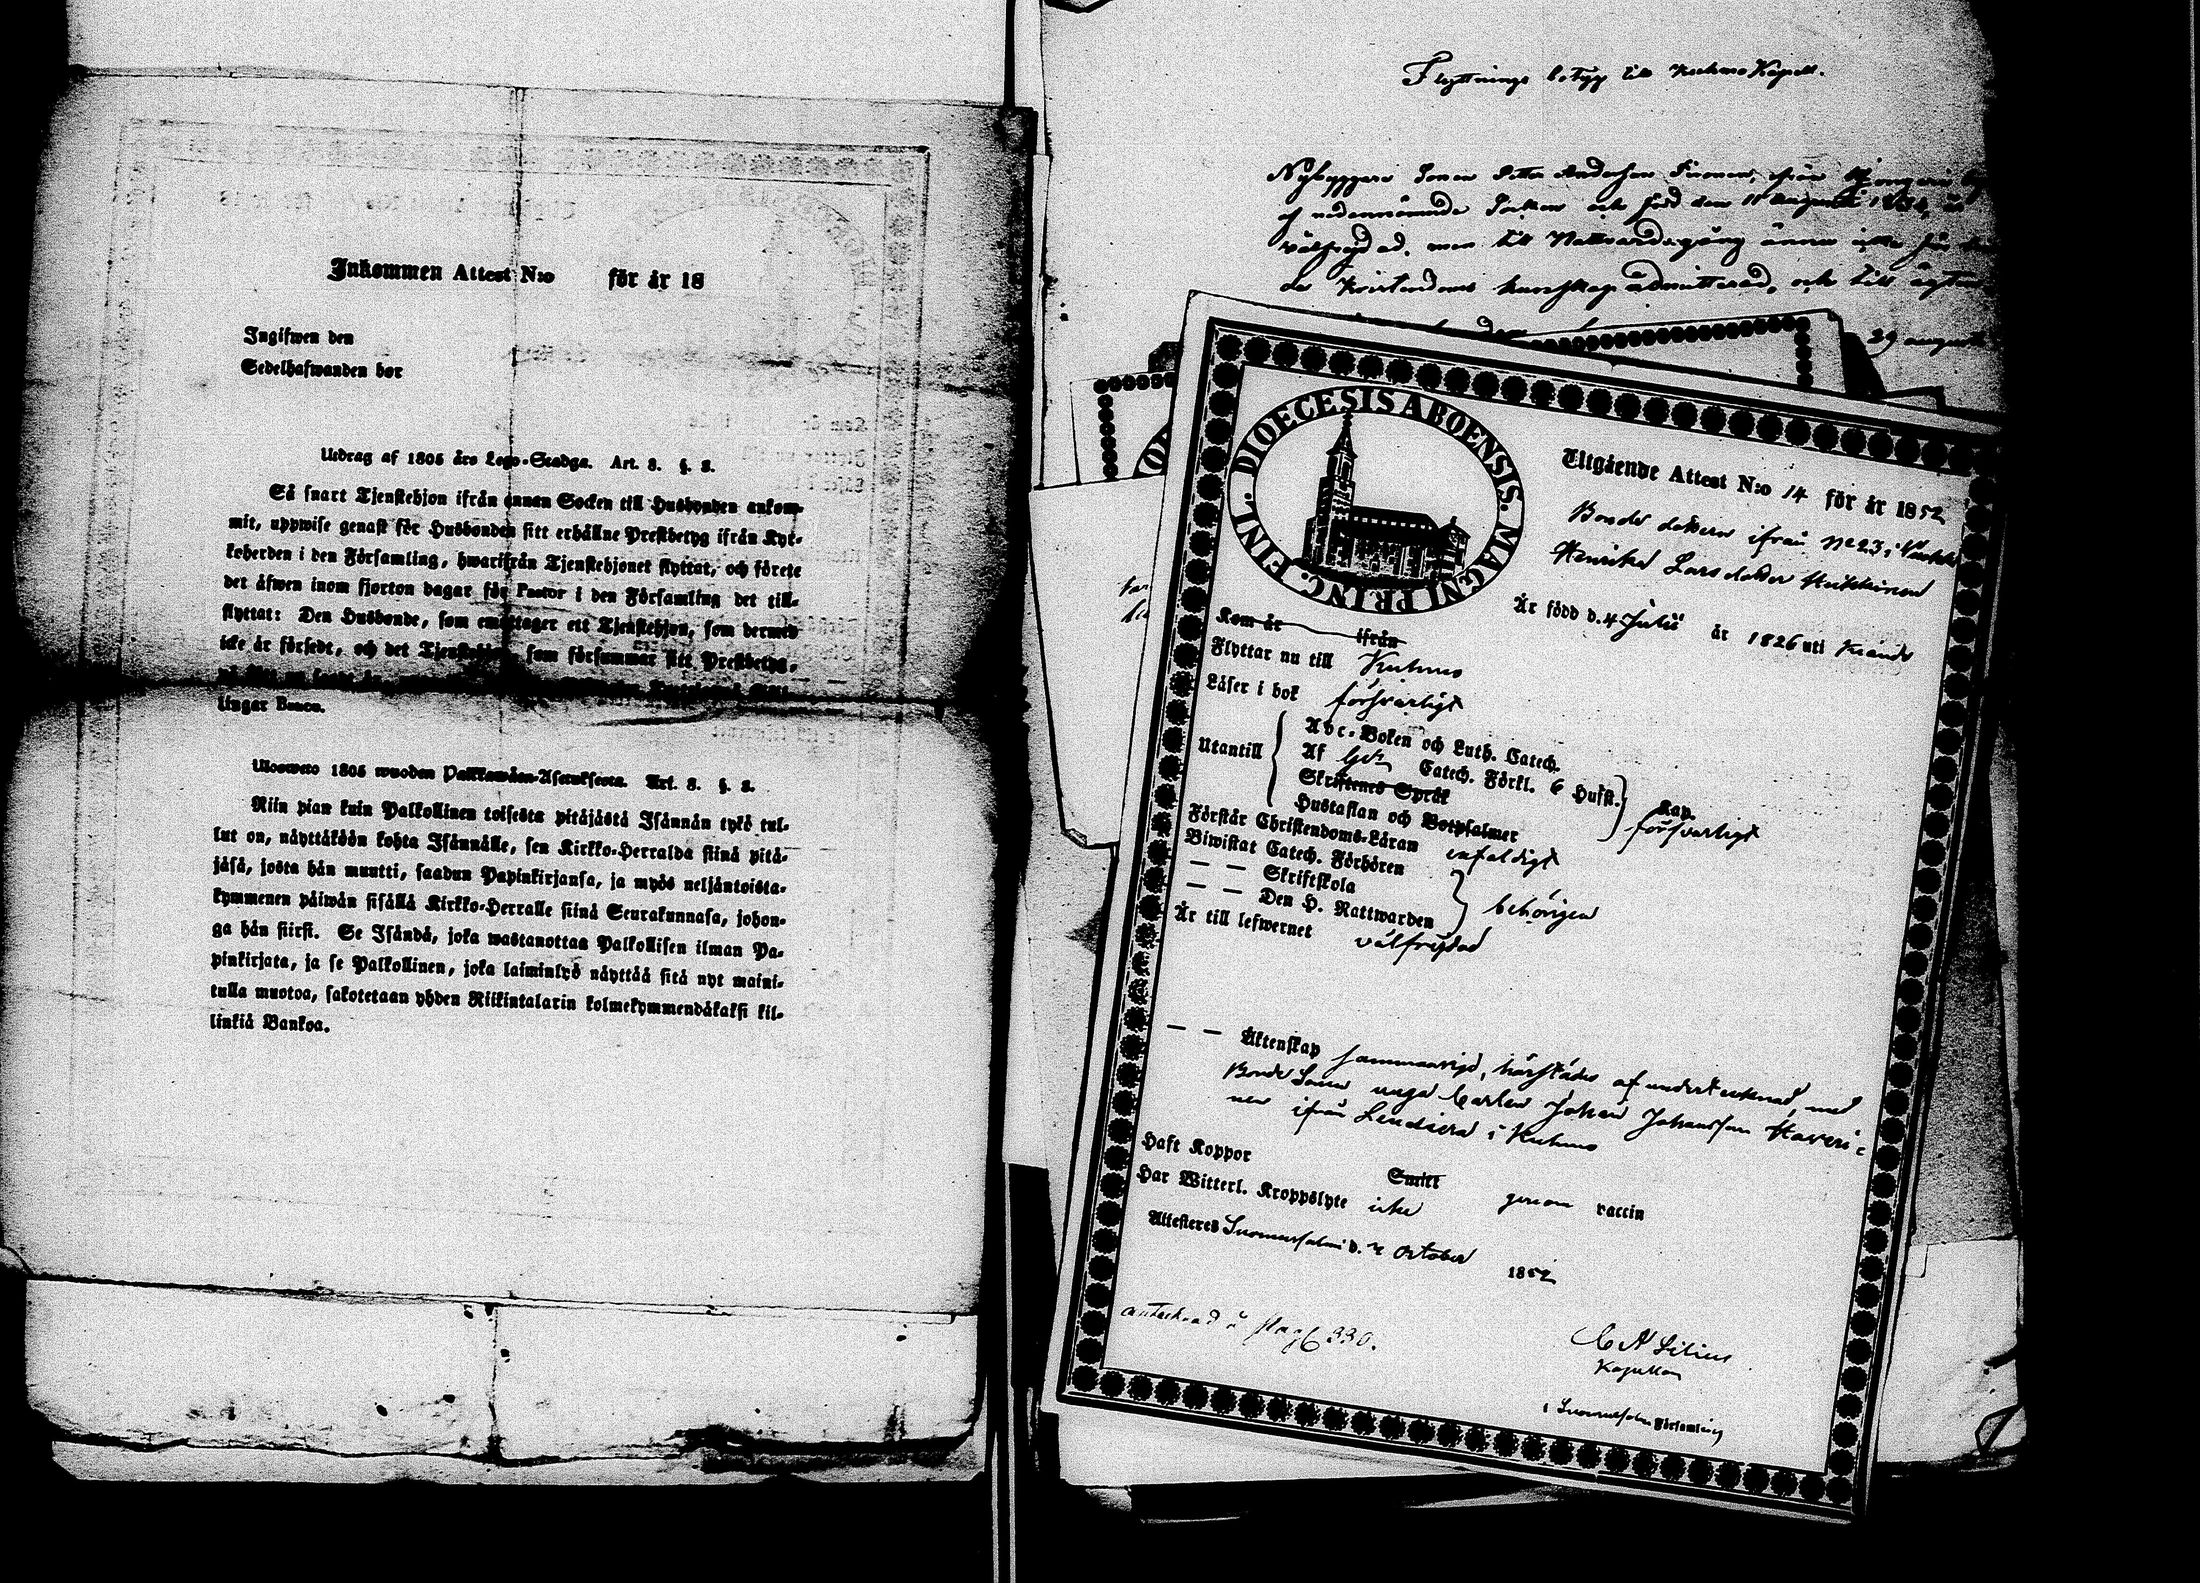 Inkommen Attest N:o för år 18
Ingifwen den
Sedelhafwanden bor
Utdrag af 1805 års Lego-Stadga. Art. 8. §. 2.
Så snart Tjenstehjon ifrån annan Socken till Husbonden ankom-
mit, uppwise genast för Husbonden sitt erhållne Prestbetyg ifrån Kyr-
koherden i den Församling, hwarifrån Tjenstehjonet flyttat, och förete
det äfwen inom fjorton dagar för Pastor i den Församling det till-
flyttat: Den Husbonde, som emottager ett Tjenstehjon, som dermed
icke är försedt, och det Tjenstehjon, som försummar sitt Prestbetyg,
lingar Banco.
Ulosweto 1805 wuoden Palkkawäen-Asetuksesta. Art. 8. §. 2.
Niin pian kuin Palkollinen toisesta pitäjästä Isännän tykö tul-
lut on, näyttäköön kohta Isännälle, sen Kirkko-Herralda siinä pitä-
jäsä, josta hän muutti, saadun Papinkirjansa, ja myös neljäntoista-
kymmenen päiwän sisällä Kirkko-Herralle siinä Seurakunnasa, johon-
ga hän siirsi. Se Isändä, joka wastanottaa Palkollisen ilman Pa-
pinkirjata, ja se Palkollinen, joka laiminlyö näyttää sitä nyt maini-
tulla muotoa, sakotetaan yhden Riikintalarin kolmekymmendäkaksi kil-
linkiä Bankoa.
Flyttnings betyg till Kuhmo Kapell.
Nybyggare Sonen Petter Andersson från
af nedannämnde Socken och född den 11 Augusti
välfrejdad, men till Nattvardsgång ännu icke
de Kristendoms kunskap admitterad, och till
29 august
DIOECESIS ABOENSIS. MAGNI PRINC. FINL.
Utgående Attest N:o 14 för år 1852
Bonde dottern ifrån No 23 i
Henrika Larsdotter
Är född d. 4 Julii år 1826 uti
Kom år ifrån
Flyttar nu till Kuhmo
Läser i bok försvarligt
Utantill
Abc-Boken och Luth. Catech.
Af Catech. Förkl. 6 Hufst.
Skriftenes Språk Kap.
Hustaflan och Botpsalmer försvarligt
Förstår Christendoms-Läran enfaldigt
Biwistat Catech. Förhören
— — Skriftskola behörigen
— — Den H. Nattwarden
Är till lefwernet välfrejdad
— — Äktenskap sammanvigd, härstädes af undertecknad, med
Bonde Sonen unge Carlen Johan Johansson Haveri-
nen ifrån Lendiera i Kuhmo
Haft Koppor Smitt genom vaccin
Har Witterl. Kroppslyte icke
Attesteres Suomussalmi d. October 1852
antecknad å pag 330.
C A Lilius
Kapellan
i Suomussalmi Församling